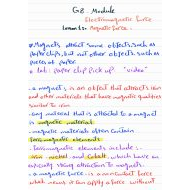 G8 Module
Electromagnetic force
Lesson 1: Magnetic force.
* Magnets attract some objects such as
paper clips, but not other objects such as
pieces of paper
* Lab: Paper clip pick up "video"
- a magnet: is an object that attracts iron
and other materials that have magnetic qualities
similar to iron
- any material that is attracted to a magnet
is magnetic material
- magnetic materials often contain
ferromagnetic elements
- ferromagnetic elements include:
iron, nickel and cobalt, which have an
especially strong attraction to magnets.
- a magnetic force: is a non contact force
what means it can apply a force without